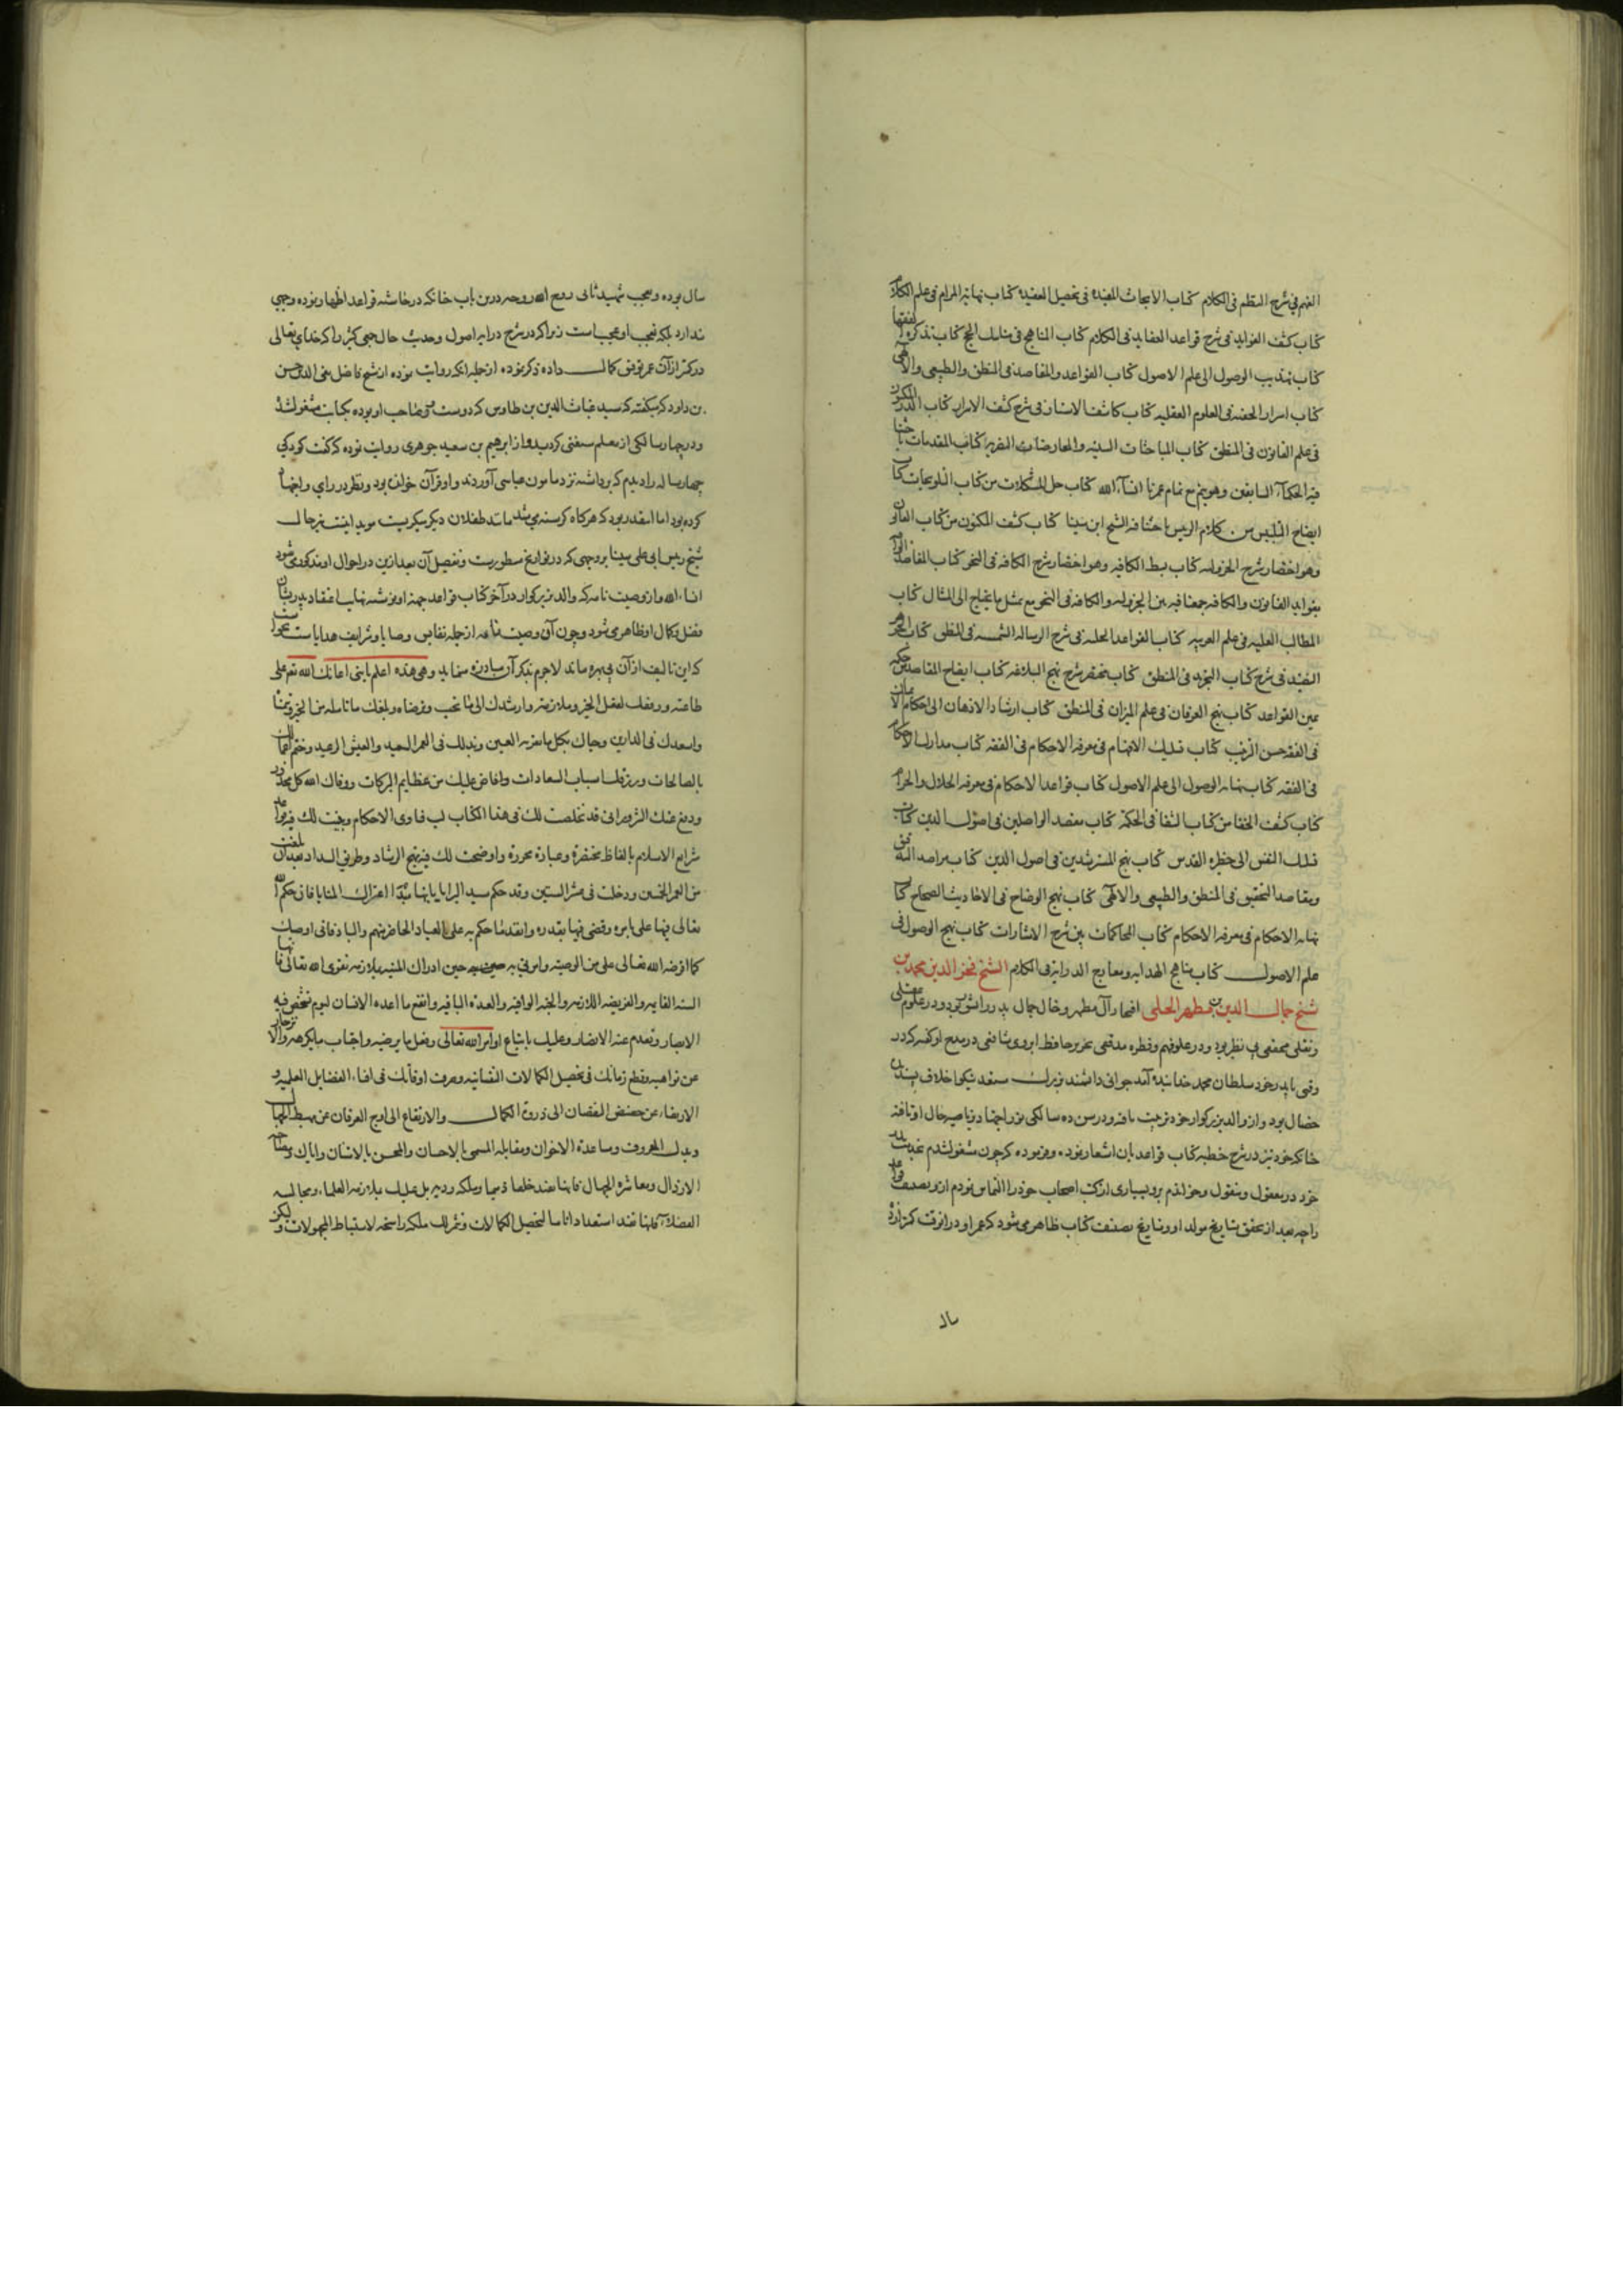 الفهم فی شرح النظم فی الکلام کتاب الابحاث المفیدة فی تحصیل العقیدة کتاب نهایة المرام فی علم الکلام
کتاب کشف الفواید فی شرح قواعد العقاید فی الکلام کتاب المناهج فی مناسک الحج کتاب تذکرة الفقها
کتاب تهذیب الوصول الی علم الاصول کتاب القواعد والمقاصد فی المنطق والطبیعی والالهی
کتاب اسرار الخفیه فی العلوم العقلیه کتاب کاشف الاستار فی شرح کشف الاسرار کتاب الدر المکنون
فی علم القانون فی المنطق کتاب المباحثات السنیه والمعارضات النصریه کتاب المقاومات باحثنا
فیه الحکماء السابقین وهو یتم مع تمام عمرنا انشاء الله کتاب حل المشکلات من کتاب التلویحات کتاب
ایضاح التلبیس من کلام الرییس باحثنا فیه الشیخ ابن سینا کتاب کشف المکنون من کتاب القانون
وهو اختصار شرح الجزولیه کتاب بسط الکافیه وهو اختصار شرح الکافیه فی النحو کتاب المقاصد الوافیه
بفواید القانون والکافیه جمعنا فیه بین الجزولیه والکافیه فی النحو مع تمثیل ما یحتاج الی المثال کتاب
المطالب العلیه فی علم العربیه کتاب القواعد الجلیه فی شرح الرساله الشمسیه فی المنطق کتاب الجوهر
النضید فی شرح کتاب التجرید فی المنطق کتاب مختصر شرح نهج البلاغه کتاب ایضاح المقاصد من حکمة
عین القواعد کتاب نهج العرفان فی علم المیزان فی المنطق کتاب ارشاد الاذهان الی احکام الایمان
فی الفقه حسن الترتیب کتاب تسلیک الافهام فی معرفة الاحکام فی الفقه کتاب مدارک الاحکام
فی الفقه کتاب نهایة الوصول الی علم الاصول کتاب قواعد الاحکام فی معرفة الحلال والحرام
کتاب کشف الخفا من کتاب الشفا فی الحکمة کتاب مقصد الواصلین فی اصول الدین کتاب
تسلک النفس الی حظیره القدس کتاب نهج المسترشدین فی اصول الدین کتاب مراصد التدقیق
ومقاصد التحقیق فی المنطق والطبیعی والالهی کتاب نهج الوضاح فی الاحادیث الصحاح کتاب
نهایة الاحکام فی معرفة الاحکام کتاب المحاکمات بین شرح الاشارات کتاب نهج الوصول فی
علم الاصول کتاب مناهج الهدایه ومعارج الدرایة فی الکلام الشیخ فخر الدین محمد بن
شیخ جمال الدین بن مطهر الحلی افتخار آل مطهر وخال جمال پدر دانشور بود و در علوم عقلی
ونقلی محققی بی نظیر بود و در علو فهم وفطره مدققی نحریر حافظ ابروی شافعی در مدح او گفته که در
وقتی با پدر خود سلطان محمد خدابنده آمد جوانی دانشمند بزرگ مستعد نیکو اخلاق پسندیده
خصال بود و از والد بزرکوار خود تربیت یافته و در سن ده سالکی نور اجتهاد در ناصیه حال او تافته
چنانکه خود نیز در شرح خطبه کتاب قواعد بآن اشعار نموده و فرموده که چون مشغول شدم بخدمت پدر
خود در معقول و منقول و خواندم برو بسیاری از کتب اصحاب خود را التماس نمودم ازو تصنیف قواعد
را چه بعد از تحقق تاریخ مولد او و تاریخ تصنیف کتاب ظاهر می شود که عمر او در انوقت کمتر از ده
سال
سال بوده و تعجب شهید ثانی روح الله روحه درین باب چنانکه در حاشیه قواعد اظهار نموده وجهی
ندارد بلکه تعجب او عجب است زیرا که در شرح درایه اصول وحدیث حال جمعی کثیر را که خدای تعالی
در کمتر ازآن عمر توفیق کمال داده ذکر نموده ازجمله انکه روایت نموده از شیخ فاضل تقی الدین حسن
بن داود که میکفته که سید غیاث الدین بن طاوس که دوست و مصاحب او بوده بکتابت مشغول شد
و در چهار سالکی از معلم مستغنی کردید و از ابرهیم بن سعید جوهری روایت نموده که کفت کودکی
چهار ساله را دیدم که برداشته نزد مامون عباسی آوردند و او قرآن خوانده بود ونظر در رای واجتهاد
کرده بود اما اینقدر بود که هرکاه کرسنه می شد مانند طفلان دیکر میکریست موید اینست نیز حال
شیخ رییس ابی علی سینا بروجهی که در تواریخ مسطورست و تفصیل آن بعد ازین در احوال او مذکور می شود
انشاء الله و از وصیت نامه که والد بزرکوار در آخر کتاب قواعد جهة او نوشته نهایت اعتقاد پدر بشان
فضل وکمال او ظاهر می شود و چون آن وصیت نامه ازجمله نفایس وصایا و شرایف هدایاست نخواست
که این تالیف از آن بی بهره ماند لاجرم بذکر آن مبادرت مینماید وهی هذه اعلم یا بنی اعانک الله تعم علی
طاعته ووفقک لفعل الخیر وملازمته وارشدک الی ما یحب ویرضاه وبلغک ما تامله من الخیر وتتمناه
واسعدک فی الدارین وحباک بکل ما تقر به العین ومد لک فی العمر السعید والعیش الرغید وختم اعمالک
بالصالحات ورزقک اسباب السعادات وافاض علیک من عظایم البرکات ووقاک الله کل محذور
ودفع عنک الشرور انی قد لخصت لک فی هذا الکتاب لب فتاوی الاحکام وبینت لک فیه قواعد
شرایع الاسلام بالفاظ مختصرة وعبارة محررة واوضحت لک فیه نهج الرشاد وطریق السداد بعد ان بلغت
من العمر الخمسین ودخلت فی عشر الستین وقد حکم سید البرایا بانها مبدا اعتراک المنایا فان حکم الله
تعالی فیها علی بامره وقضی فیها بقدره وانفذ ما حکم به علی العباد الحاضر منهم والباد فانی اوصیک
کما افترضه الله تعالی علی من الوصیة وامرنی به حین ادراک المنیه بملازمة تقوی الله تعالی فانها
السنه القایمه والفریضه اللازمه والجنه الواقیه والعدة الباقیه وانفع ما اعده الانسان لیوم تشخص فیه
الابصار وتعدم عنه الانصار وعلیک باتباع اوامر الله تعالی وفعل ما یرضیه واجتناب ما یکرهه والانزجار
عن نواهیه وقطع زمانک فی تحصیل الکمالات النفسانیه وصرف اوقاتک فی اقتناء الفضایل العلمیه و
الارتقاء عن حضیض النقصان الی ذروة الکمال والارتفاع الی اوج العرفان عن مهبط الجهال
وبذل المعروف ومساعدة الاخوان ومقابلة المسی بالاحسان والمحسن بالامتنان وایاک ومصاحبة
الارذال ومعاشرة الجهال فانها تفید خلقا ذمیما وملکه ردیه بل علیک بملازمة العلماء ومجالسه
الفضلاء فانها تفید استعدادا تاما لتحصیل الکمالات وتثمر لک ملکه راسخه لاستنباط المجهولات ولیکن